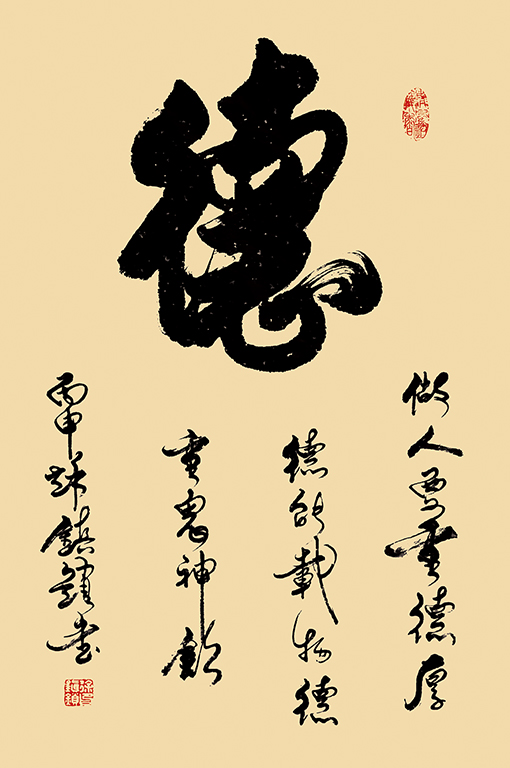 德
做人要重德厚
德能載物德
重鬼神欽
丙申 鎮 書